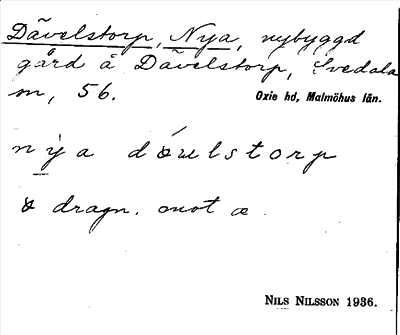 Dävelstorp, Nya, nybyggd
gård å Dävelstorp, Svedala
sn, 56.
Oxie hd, Malmöhus län.
nya dœulstorp
dragn. mot æ
NILS NILSSON 1936.